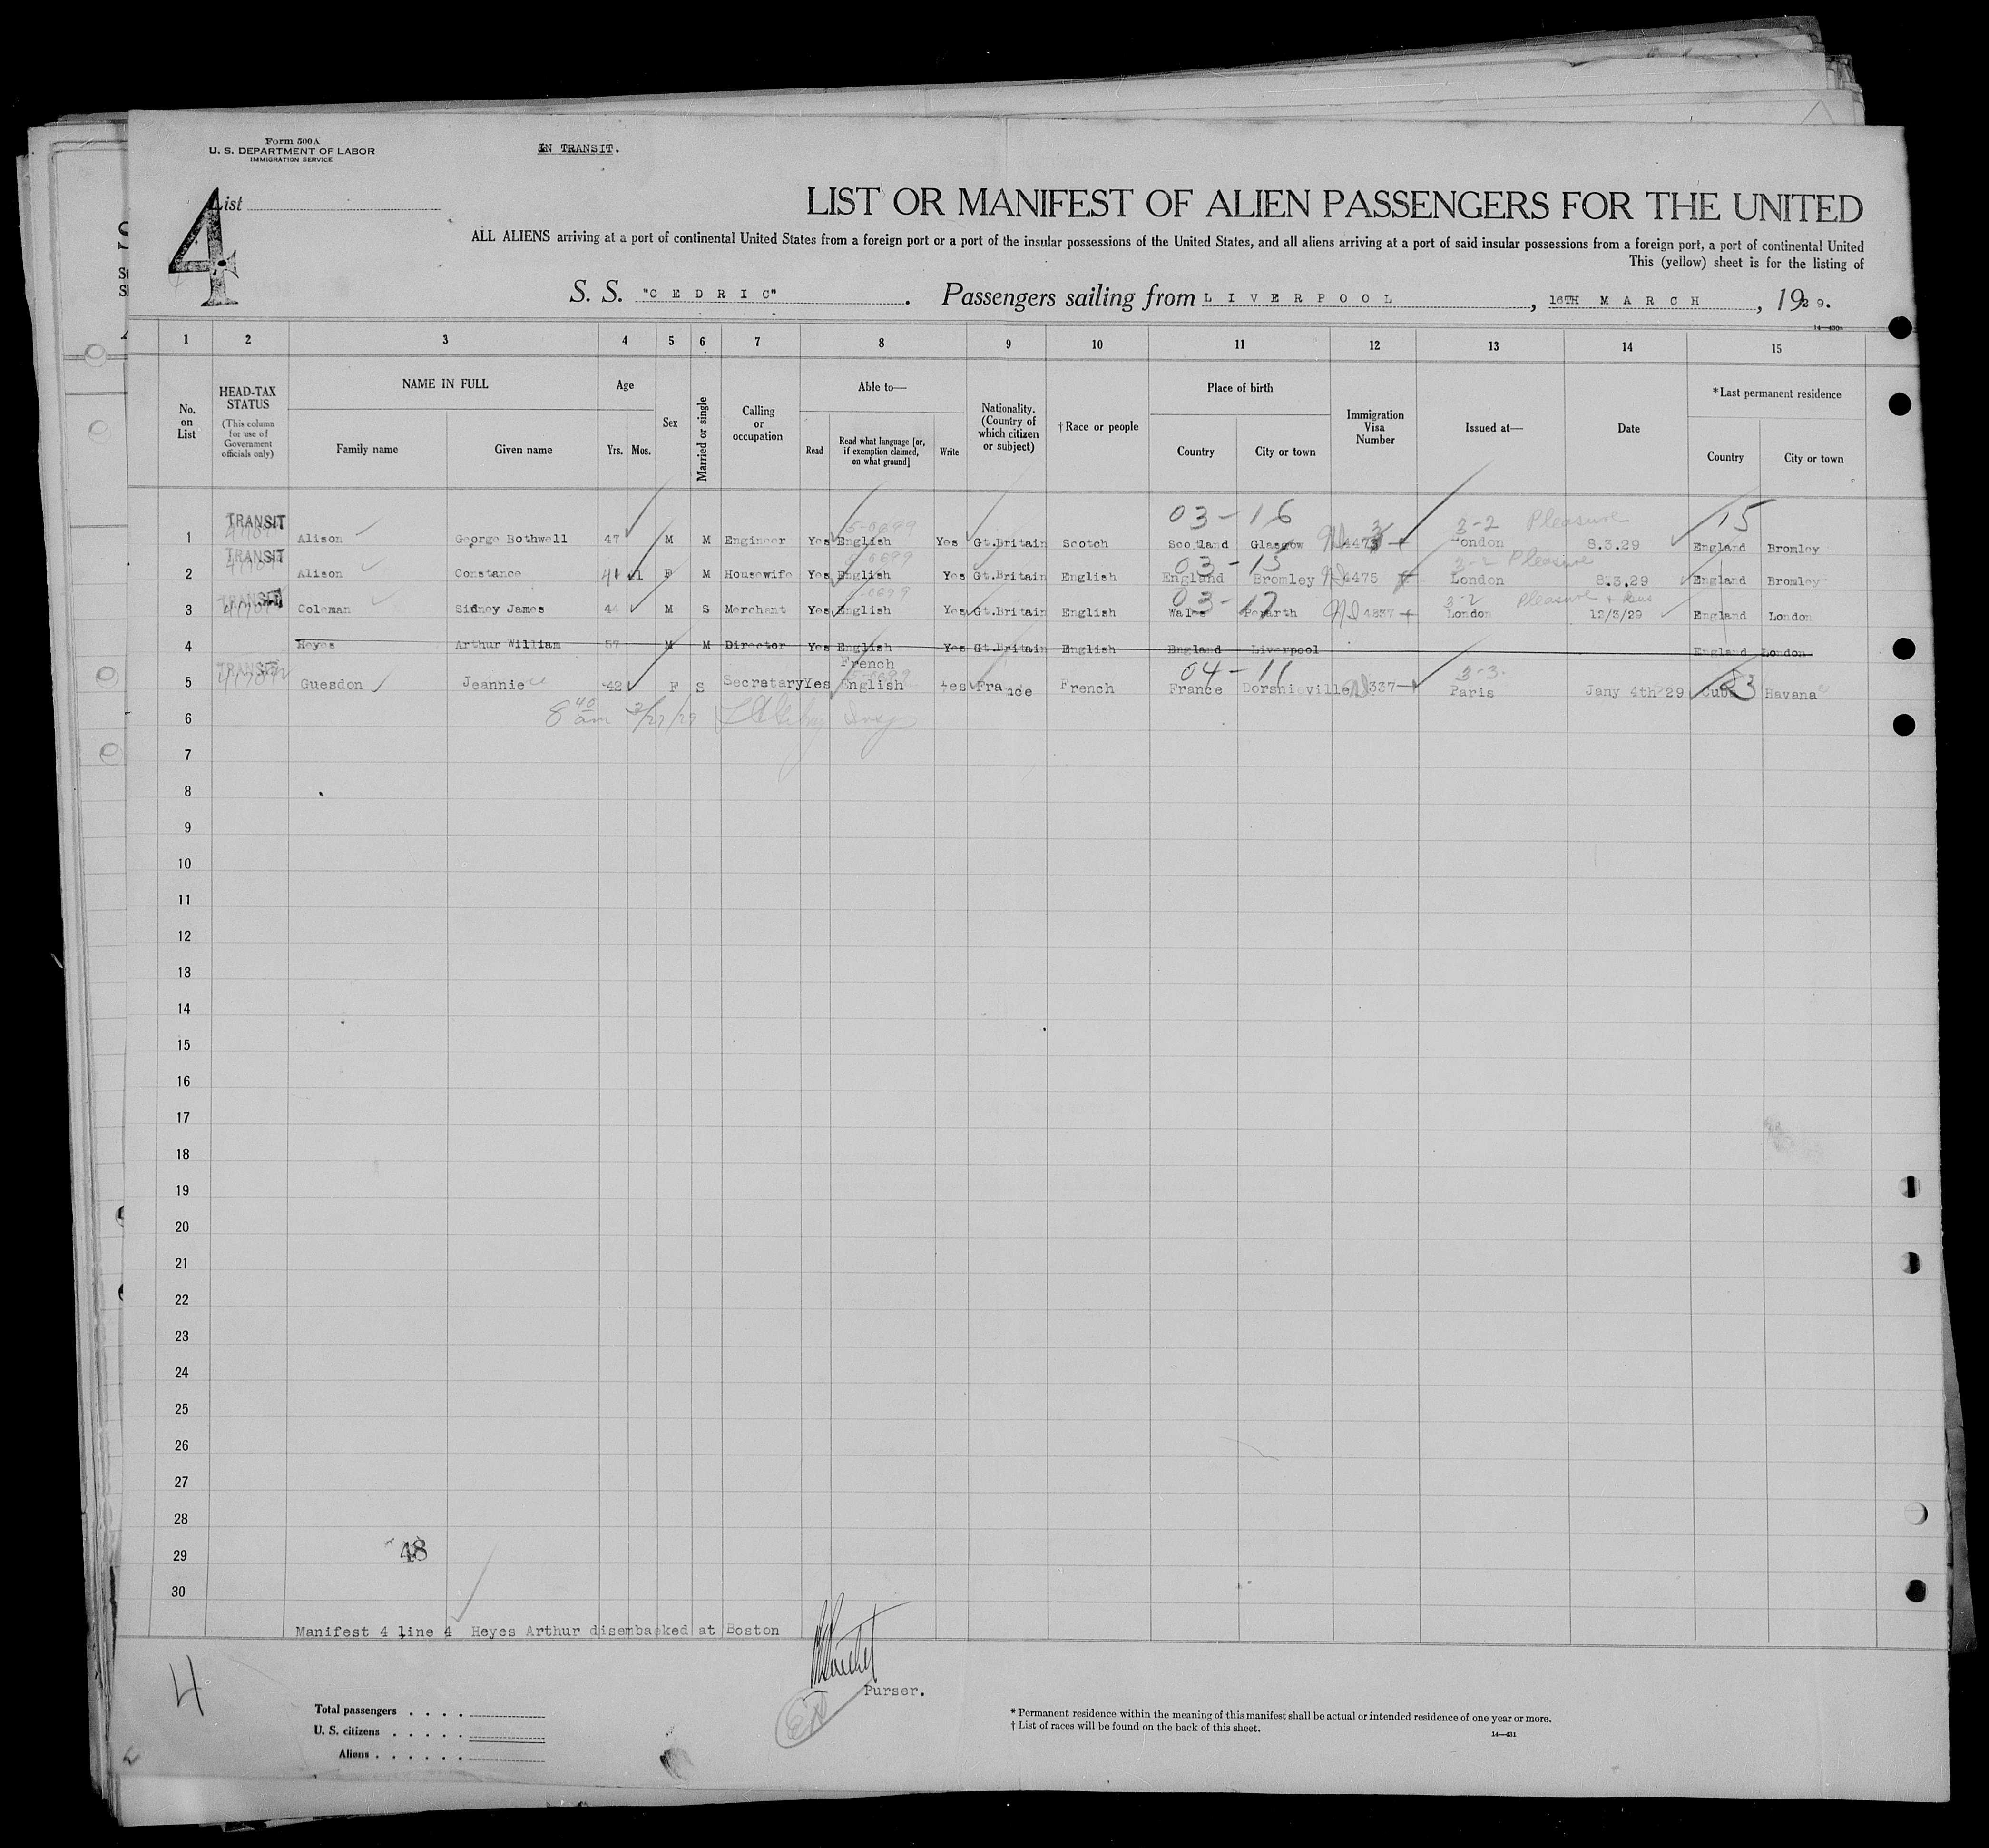 Form 500A
U. S. DEPARTMENT OF LABOR
IMMIGRATION SERVICE
IN TRANSIT.
List
4
LIST OR MANIFEST OF ALIEN PASSENGERS FOR THE UNITED
ALL ALIENS arriving at a port of continental United States from a foreign port or a port of the insular possessions of the United States, and all aliens arriving at a port of said insular possessions from a foreign port, a port of continental United
This (yellow) sheet is for the listing of
S. S. "C E D R I C" . Passengers sailing from L I V E R P O O L , 16TH M A R C H , 1929.
14—430a
1 2 3 4 5 6 7 8 9 10 11 12 13 14 15
No. on List
HEAD-TAX STATUS
(This column for use of Government officials only)
NAME IN FULL
Family name Given name
Age
Yrs. Mos.
Sex
Married or single
Calling or occupation
Able to—
Read
Read what language [or, if exemption claimed, on what ground]
Write
Nationality. (Country of which citizen or subject)
† Race or people
Place of birth
Country City or town
Immigration Visa Number
Issued at—
Date
*Last permanent residence
Country City or town
03-16 3-2 Pleasure 15
1 TRANSIT Alison George Bothwell 47 M M Engineer Yes English Yes Gt.Britain Scotch Scotland Glasgow 4473 London 8.3.29 England Bromley
03-15 3-2 Pleasure
2 TRANSIT Alison Constance 41 11 F M Housewife Yes English Yes Gt.Britain English England Bromley 4475 London 8.3.29 England Bromley
03-17 3-2 Pleasure
3 TRANSIT Coleman Sidney James 44 M S Merchant Yes English Yes Gt.Britain English Wales Penarth 4837 London 12/3/29 England London
4 Heyes Arthur William 57 M M Director Yes English Yes Gt.Britain English England Liverpool England London
04-11 3-3
5 TRANSIT Guesdon Jeannie 42 F S Secretary Yes French English Yes France French France Dorsnieville 337 Paris Jany 4th 29 Cuba Havana
6 8 40 am 3/27/29
7
8
9
10
11
12
13
14
15
16
17
18
19
20
21
22
23
24
25
26
27
28
29 48
30
Manifest 4 line 4 Heyes Arthur disembacked at Boston
Purser.
4
Total passengers . . . .
U. S. citizens . . . . .
Aliens . . . . . .
* Permanent residence within the meaning of this manifest shall be actual or intended residence of one year or more.
† List of races will be found on the back of this sheet.
14—431